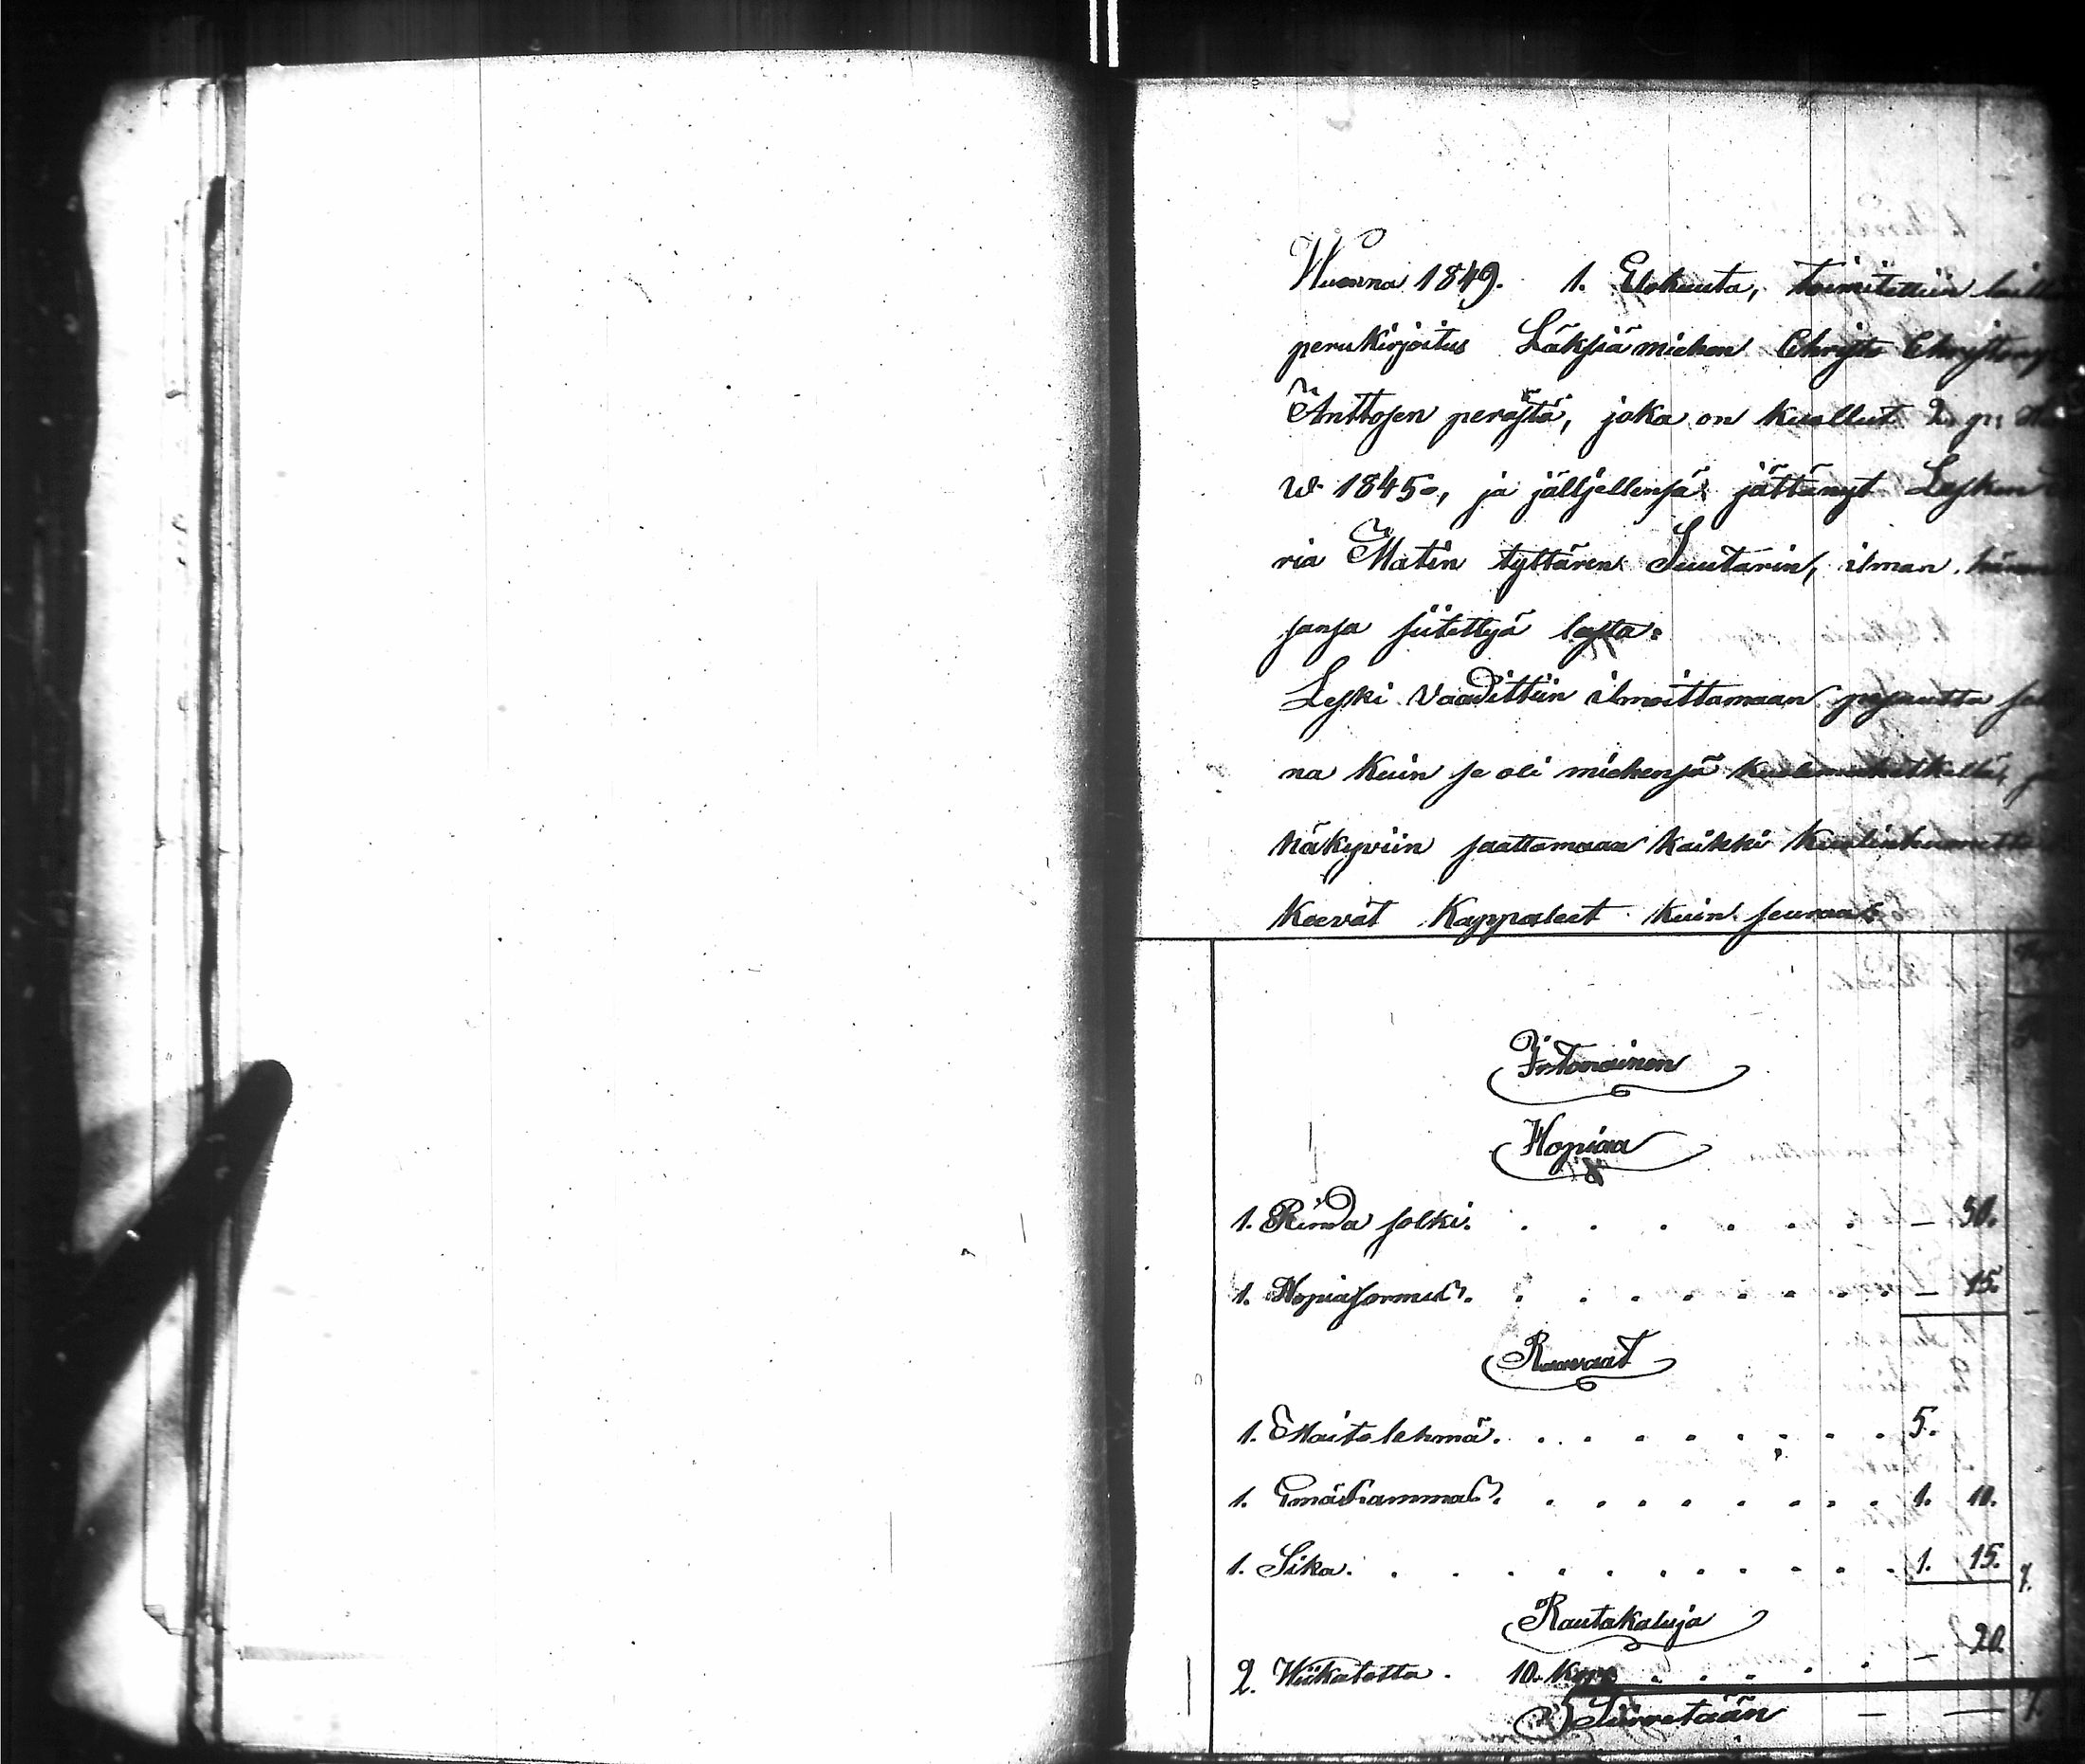 Wuonna 1849. 1. Elokuuta, toimitettiin
perukirjoitus Läksiämiehen Christo
Anttosen perästä, joka on kuollut 2. p:
w. 1845, ja jälljellensä jättänyt Lesken
ria Matin tyttären Suutarin, ilman
sansa siitettyä lasta.
Leski vaadittiin ilmoittamaan pesäutta
na kuin se oli miehensä kuolemahetkellä,
näkyviin saattamaan kaikki
keevät Kappaleet kuin seuraa
Irtonainen
Hopiaa
1. Rinda solki. — 50.
1. Hopiasormus. — 15.
Raavaat
1. Maito lehmä. 5.
1. Emälammas. 1. 10.
1. Sika. 1. 15. 7.
Rautakaluja
2. Wiikatetta. 10. Kop — 20.
Siirretään — —